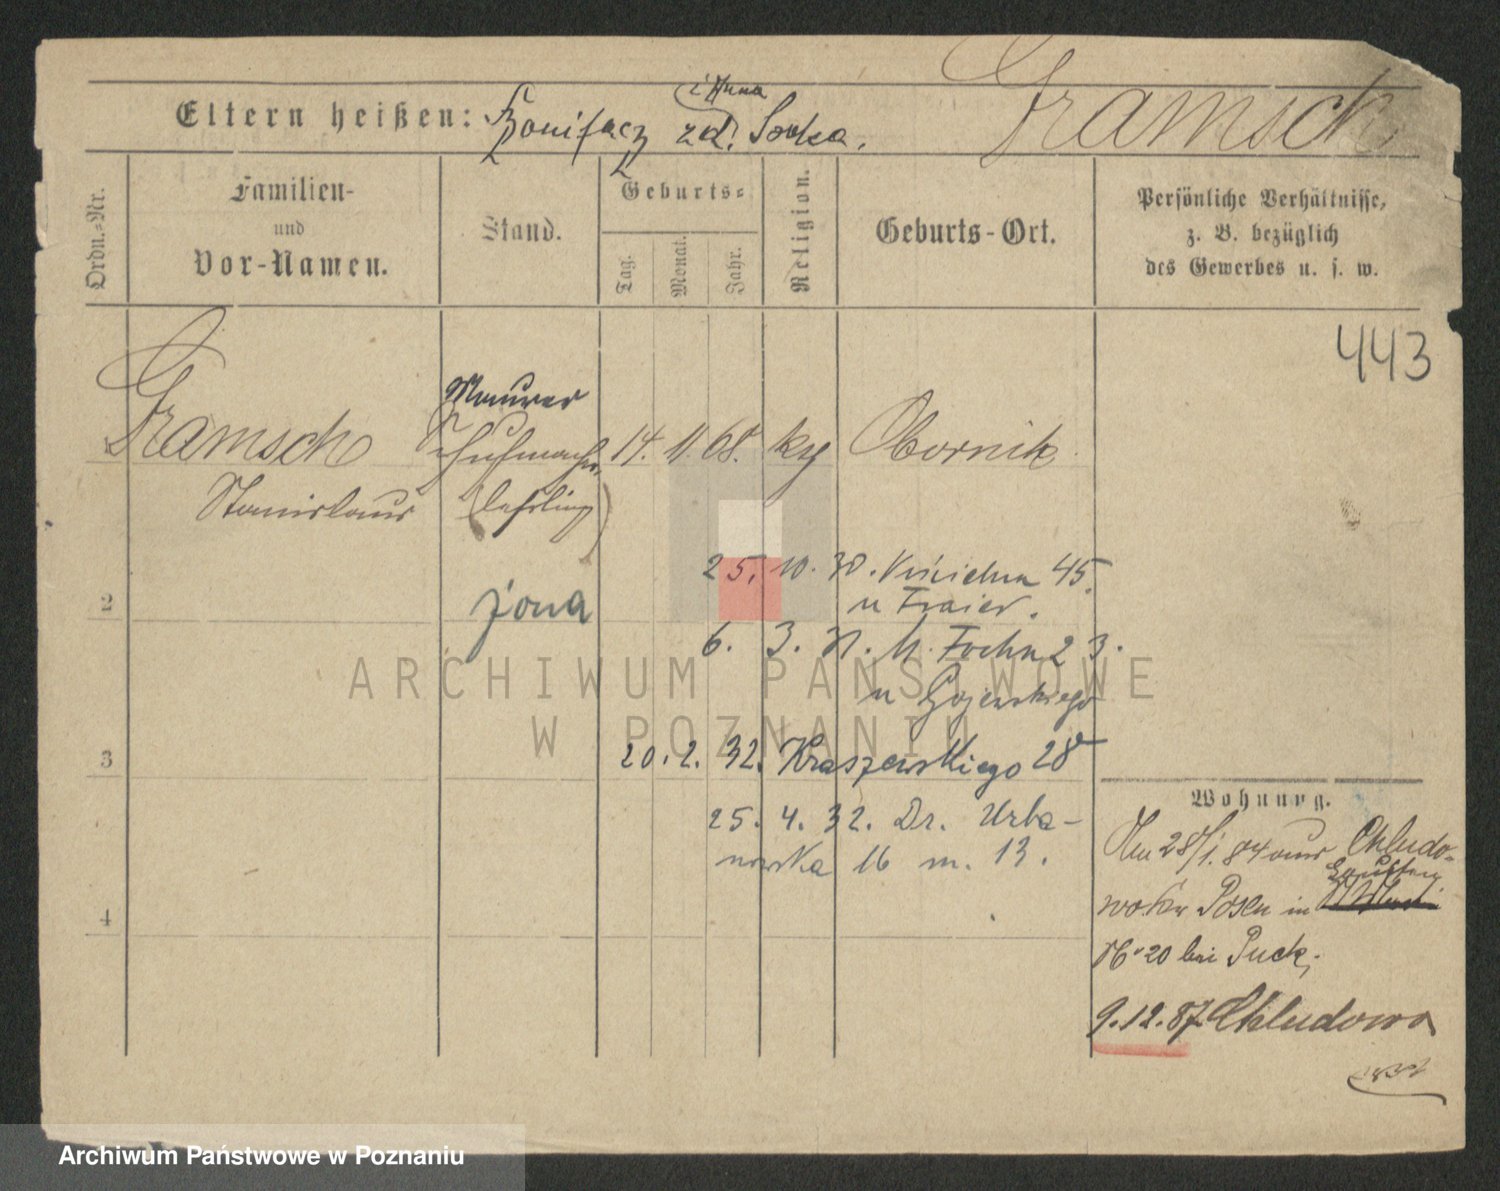 Gramsch
i Anna
Eltern heißen: Bonifacz zd. Sowka.
Ordn.-Nr.
Familien-
und
Vor-Namen.
Stand.
Geburts-
Tag.
Monat.
Jahr.
Religion.
Geburts-Ort.
Persönliche Verhältnisse,
z. B. bezüglich
des Gewerbes u. s. w.
443
Maurer
Gramsch Schuhmacher 14. 11. 68. kg Obornik
Stanislaus (Lehrling)
25. 10. 30. 45.
2 żona u
6. 3. 31. M. Focha 23.
u Gajewskiego
3 20. 2. 32. Kraszewskiego 28
25. 4. 32. Dr. Urba-
nowska 16 m. 13.
4
Wohnung.
28/1. 84 aus Chludo-
wo Posen in
No 20 bei Puck,
9.12.87 Chludowo
ARCHIWUM PAŃSTWOWE
W POZNANIU
Archiwum Państwowe w Poznaniu